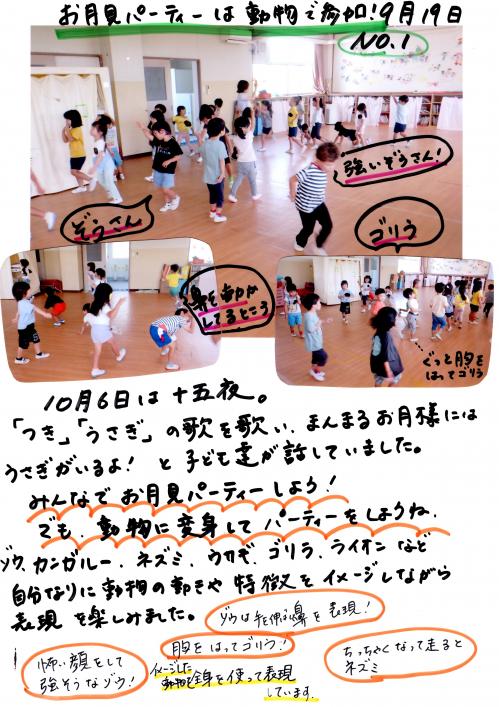 お月見パーティーは動物で参加!9月19日
NO.1
強いぞうさん!
ぞうさん
ゴリラ
鼻を動か
してるところ
ぐっと胸を
はってゴリラ
10月6日は十五夜。
「つき」「うさぎ」の歌を歌い、まんまるお月様には
うさぎがいるよ!と子ども達が話していました。
みんなでお月見パーティーしよう!
でも、動物に変身してパーティーをしようね。
ゾウ、カンガルー、ネズミ、ウサギ、ゴリラ、ライオンなど
自分なりに動物の動きや特徴をイメージしながら
表現を楽しみました。
ゾウは手を伸ばし鼻を表現!
胸をはってゴリラ!
ちっちゃくなって走ると
ネズミ
怖い顔をして
強そうなゾウ!
イメージした
動物を全身を使って表現
しています。